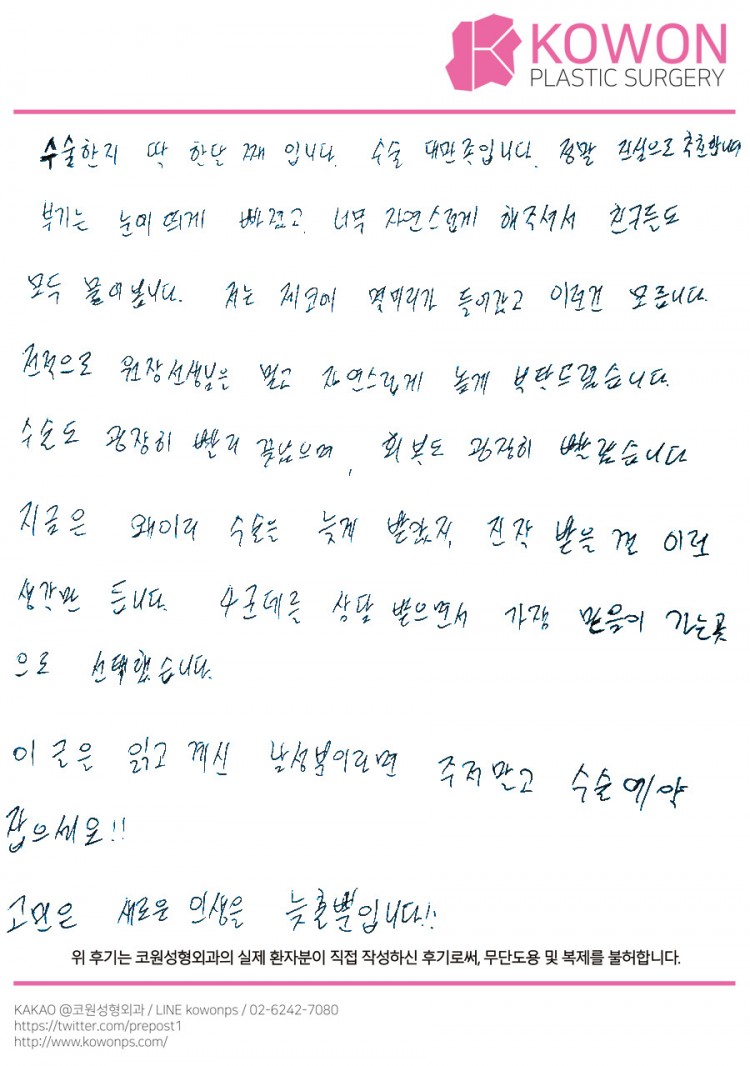 KOWON
PLASTIC SURGERY
수술한지 딱 한달 째 입니다. 수술 대만족입니다. 정말 진심으로 추천합니다
부기는 눈에 띄게 빠졌고, 너무 자연스럽게 해주셔서 친구들도
모두 물어봅니다. 저는 제코에 몇미리가 들어갔고 이런건 모릅니다.
전적으로 원장선생님은 믿고 자연스럽게 높게 부탁드렸습니다.
수술도 굉장히 빨리 끝났으며, 회복도 굉장히 빨랐습니다
지금은 왜이리 수술은 늦게 받았지, 진작 받을 걸 이런
생각만 듭니다. 4군데를 상담 받으면서 가장 믿음이 가는곳
으로 선택했습니다.
이 글은 읽고 계신 남성분이라면 주저말고 수술예약
잡으세요!!
고민은 새로운 인생은 늦출뿐입니다!!
위 후기는 코원성형외과의 실제 환자분이 직접 작성하신 후기로써, 무단도용 및 복제를 불허합니다.
KAKAO @코원성형외과 / LINE kowonps / 02-6242-7080
https://twitter.com/prepost1
http://www.kowonps.com/